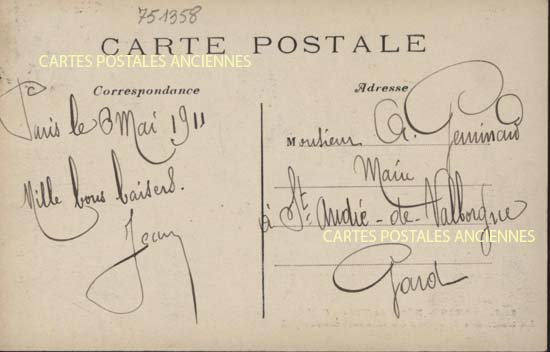 751358
CARTE POSTALE
CARTES POSTALES ANCIENNES
Correspondance
Paris le 6 Mai 1911
Mille bons baisers.
Jean
Adresse
Monsieur A. Geminard
Maire
à St. André-de-Valborgne
CARTES POSTALES ANCIENNES
Gard